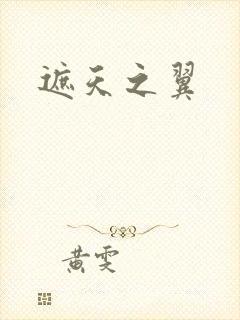 遮天之翼
黄雯